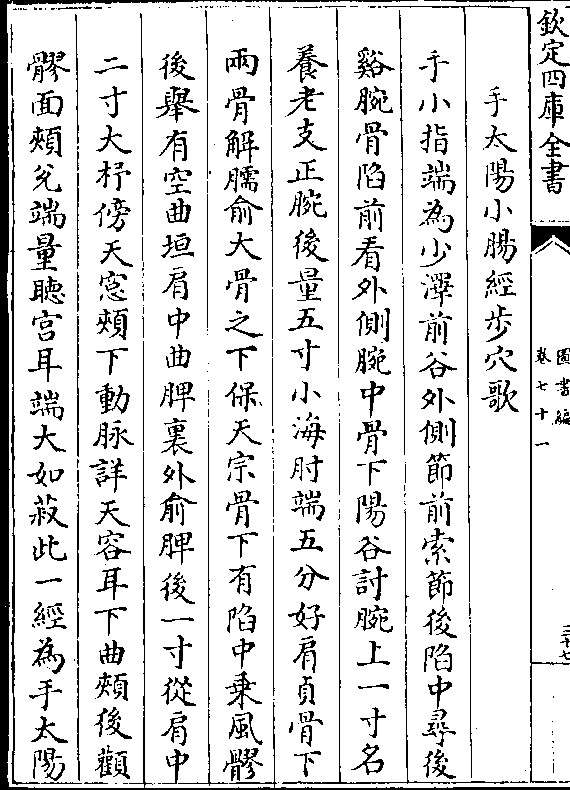 欽定四庫全書
圖書編
卷七十一
三十七
手太陽小腸經步穴歌
手小指端為少澤前谷外側節前索節後陷中尋後
谿腕骨陷前看外側腕中骨下陽谷討腕上一寸名
養老支正腕後量五寸小海肘端五分好肩貞骨下
兩骨解臑俞大骨之下保天宗骨下有陷中乗風髎
後舉有空曲垣肩中曲脾裏外俞脾後一寸從肩中
二寸大杼傍天窓頰下動脉詳天容耳下曲頰後顴
髎面頰兊端量聽宫耳端大如菽此一經為手太陽